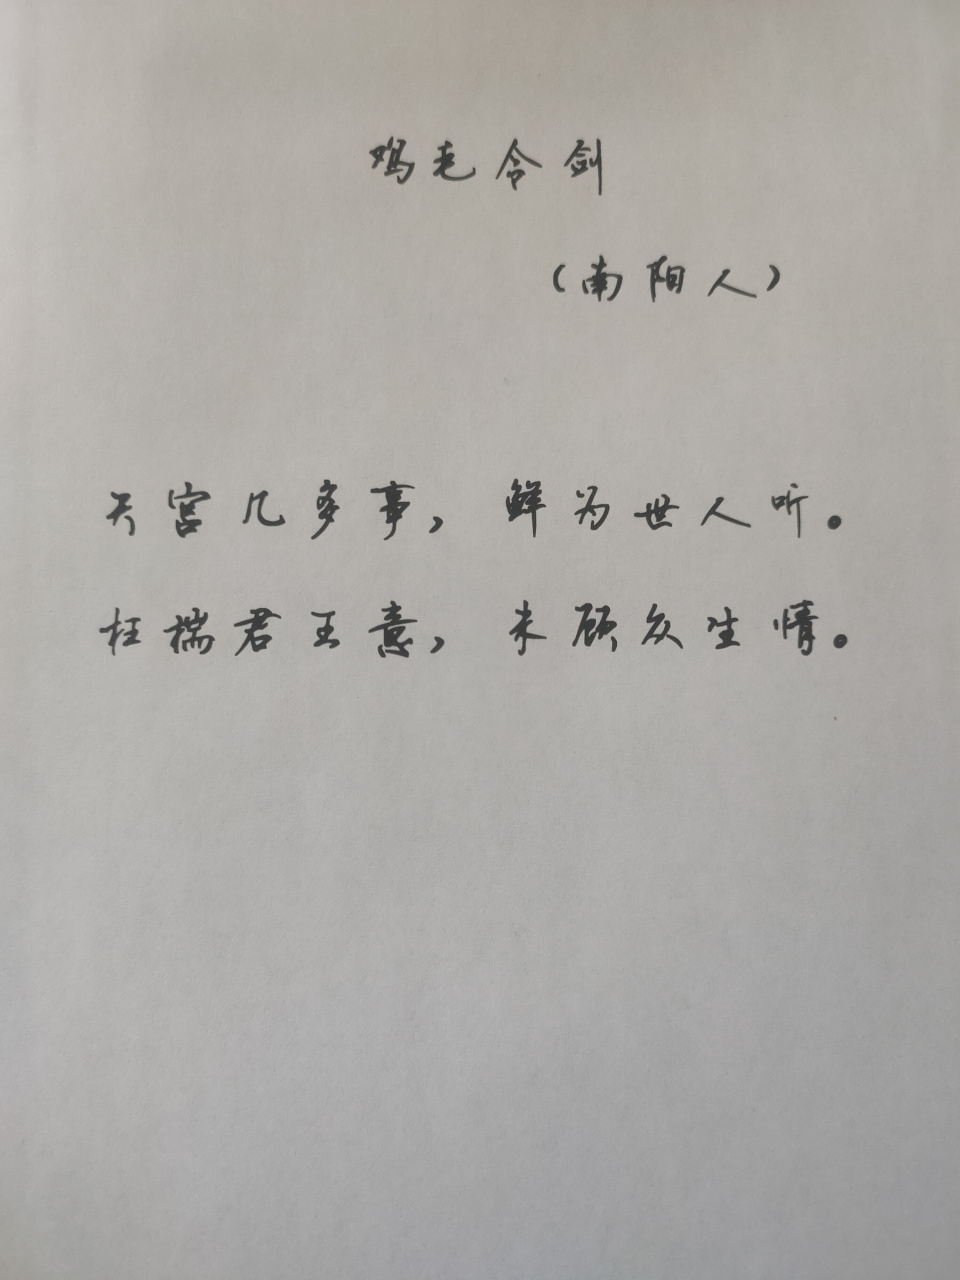 鸡毛令剑
（南阳人）
天宫几多事，鲜为世人听。
枉揣君王意，未顾众生情。